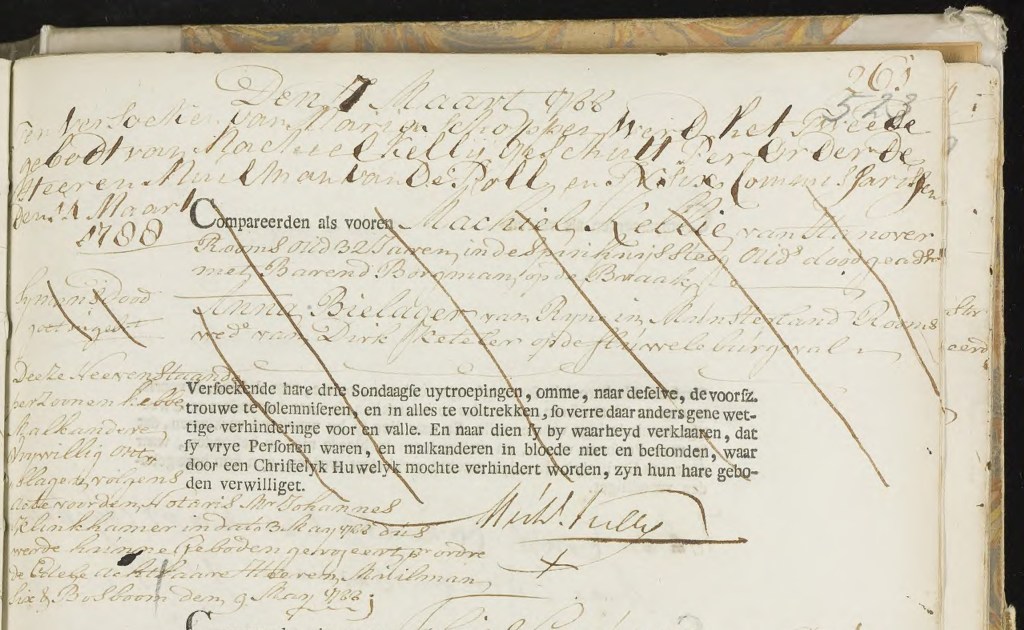 261
528
Den 7 Maart 1788
ten versoeke van Maria Schopken werd het tweede
gebodt van Machiel Kellij geschutt Per order de
Heeren Muilman van De Poll en Six Commissarissen
den 14 Maart
1788
Compareerden als vooren Machiel Kellie van Hanover
Rooms oud 32 Jaren, in de Spinhuijssteeg Ouds dood geadst
met Barend Borgman, op de Braak
Anna Bielager van Ryne in Munsterland Rooms
wede van Dirk Keteler op de Fluwele burgwal
Symons Dood
Verſoekende hare drie Sondaagſe uytroepingen, omme, naar deſelve, de voorſz.
trouwe te ſolemniſeren, en in alles te voltrekken, ſo verre daar anders gene wet-
tige verhinderinge voor en valle. En naar dien ſy by waarheyd verklaaren, dat
ſy vrye Perſonen waren, en malkanderen in bloede niet en beſtonden, waar
door een Chriſtelyk Huwelyk mochte verhindert worden, zyn hun hare gebo-
den verwilliget.
Deeze Nevenstaande
perzoonen hebbe
Malkandere
Vrywillig ontsl
slagen, volgens
acte voor den Notaris Mr Johannes
Klinkhamer in dato 3 May 1788 dus
werde hunne Geboden geroyeert pr ordre
de Edele Achtbaare Heeren, Muilman,
Six & Bosboom den 9 May 1788
Michl. Kelly
+